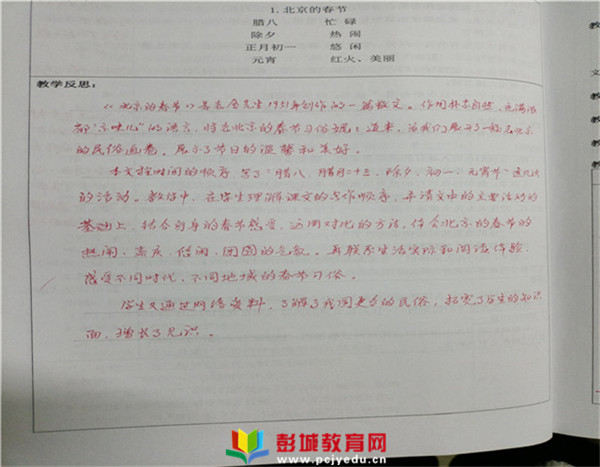 1.北京的春节
腊八 忙 碌
除夕 热 闹
正月初一 悠 闲
元宵 红火、美丽
教学反思：
《北京的春节》是老舍先生1951年创作的一篇散文。作用朴素自然、充满浓
郁“京味儿”的语言，将老北京的春节习俗娓娓道来，给我们展开了一幅老北京
的民俗画卷。展示了节日的温馨和美好。
本文按时间的顺序，写了“腊八、腊月二十三、除夕、初一、元宵节”这几天
的活动。教学中，在学生理解课文的写作顺序，弄清文中的主要活动的
基础上，结合自身的春节感受，运用对比的方法，体会北京的春节的
热闹、喜庆、悠闲、团圆的气氛。再联系生活实际和阅读体验，
感受不同时代、不同地域的春节习俗。
学生又通过网络资料，了解了我国更多的民俗，拓宽了学生的知识
面，增长了见识。
彭城教育网
www.pcjyedu.cn